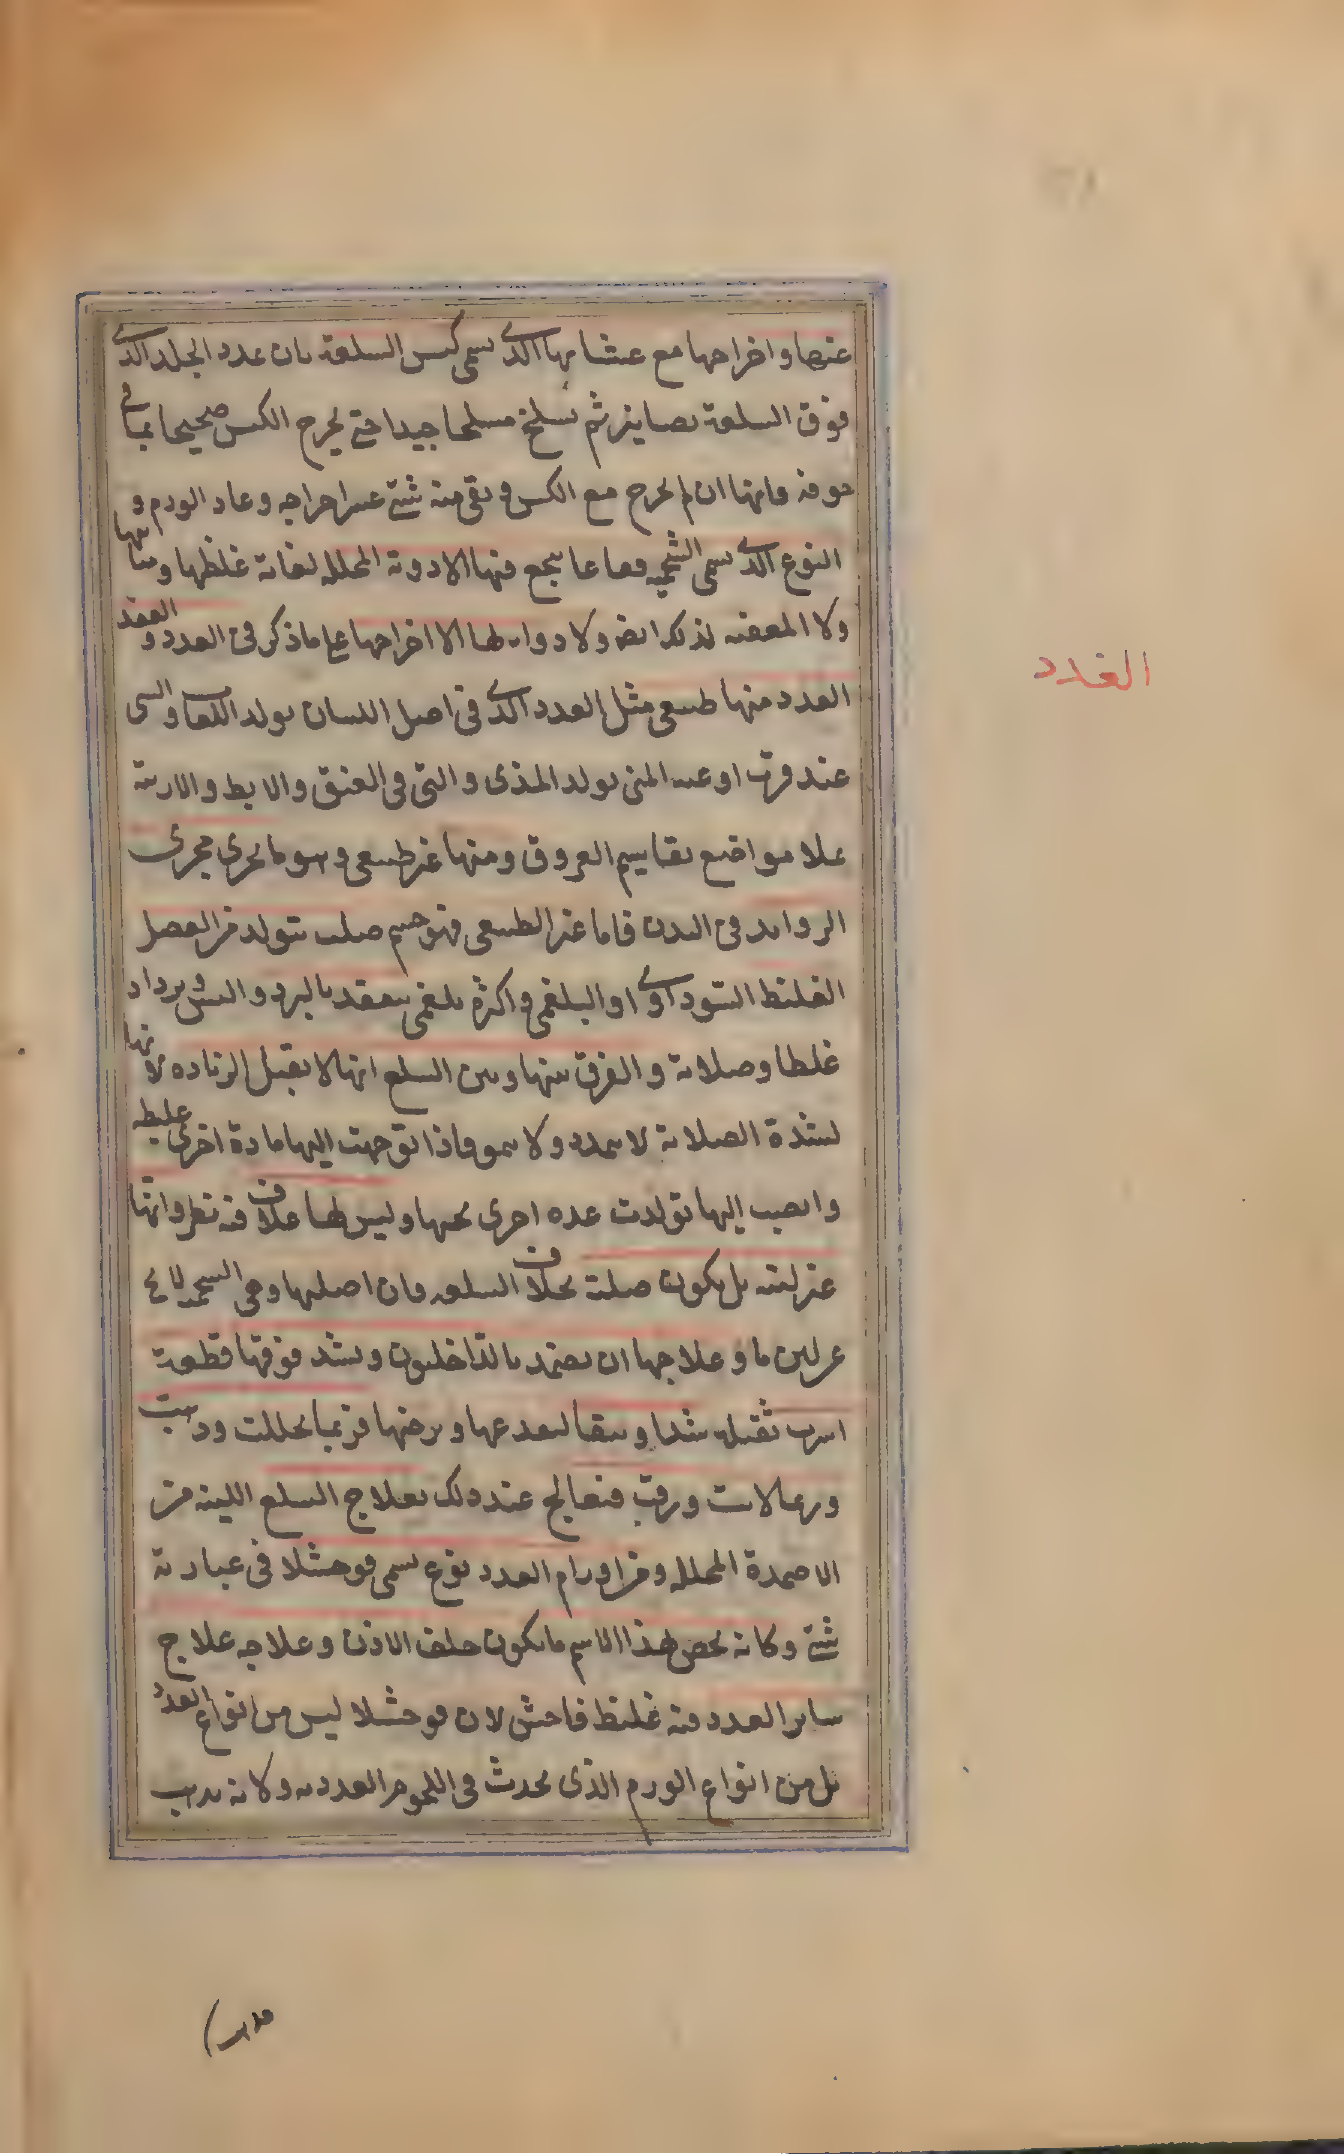 عنها واخراجها مع غشائها الذى يسمى كيس السلعة بان عدد الجلد الذى
فوق السلعة بصنانير ثم يسلخ مسلخا جيدا حتى يخرج الكيس صحيحا بما فى
جوفه فانها ان لم يخرج مع الكيس و بقى منه شئ عسر اخراجه وعاد الورم و اما
النوع الذى يسمى الشحميه فما ينجع فيها الادوية المحلله لغاية غلظها ومتانتها
ولا المعفنه لذلك ايضا ولا دواء لها الا اخراجها على ما ذكر فى الغدد و العقد
الغدد منها طبيعى مثل الغدد الذى فى اصل اللسان يولد اللعاب والتى
عند قرب اوعية المنى يولد المذى والتى فى العنق والابط والاربية
ملا مواضع تقاسيم العروق ومنها غير طبيعى وهو ما يجرى مجرى
الزوايد فى البدن فاما غير الطبيعى فهو جسم صلب يتولد من الفضل
الغليظ السوداوى او البلغمى واكثره بلغمى ينعقد بالبرد واليبس ويزداد
غلظا وصلابة والفرق بينها وبين السلع انها لا يقبل الزياده لانها
لشدة الصلابة لا يتمدد ولا ينمو فاذا توجهت اليها مادة اخرى غليظه
وانصب اليها تولدت غده اخرى بجنبها وليس لها غلاف فيه نظر وانها
غير لينه بل يكون صلبة بخلاف السلعه فان اصلبها وهى الشحميه لا يخ
عن لين ما و علاجها ان يضمد بالداخليون ويشد فوقها قطعة
اسرب ثقيله شدا وثيقا لبعد عها ويرضها فربما تحللت وذهبت
وربما لانت ورقت فتعالج عند ذلك بعلاج السلع اللينه من
الاضمدة المحلله ومن اورام الغدد نوع يسمى فوجثلا فى عبارته
شئ وكانه يخص هذا الاسم ما يكون خلف الاذن وعلاجه علاج
ساير الغدد فيه غليظ فاحش لان فوجثلا ليس من انواع الغدد
بل من انواع الورم الذى يحدث فى اللحوم الغدديه ولانه يذهب
الغدد